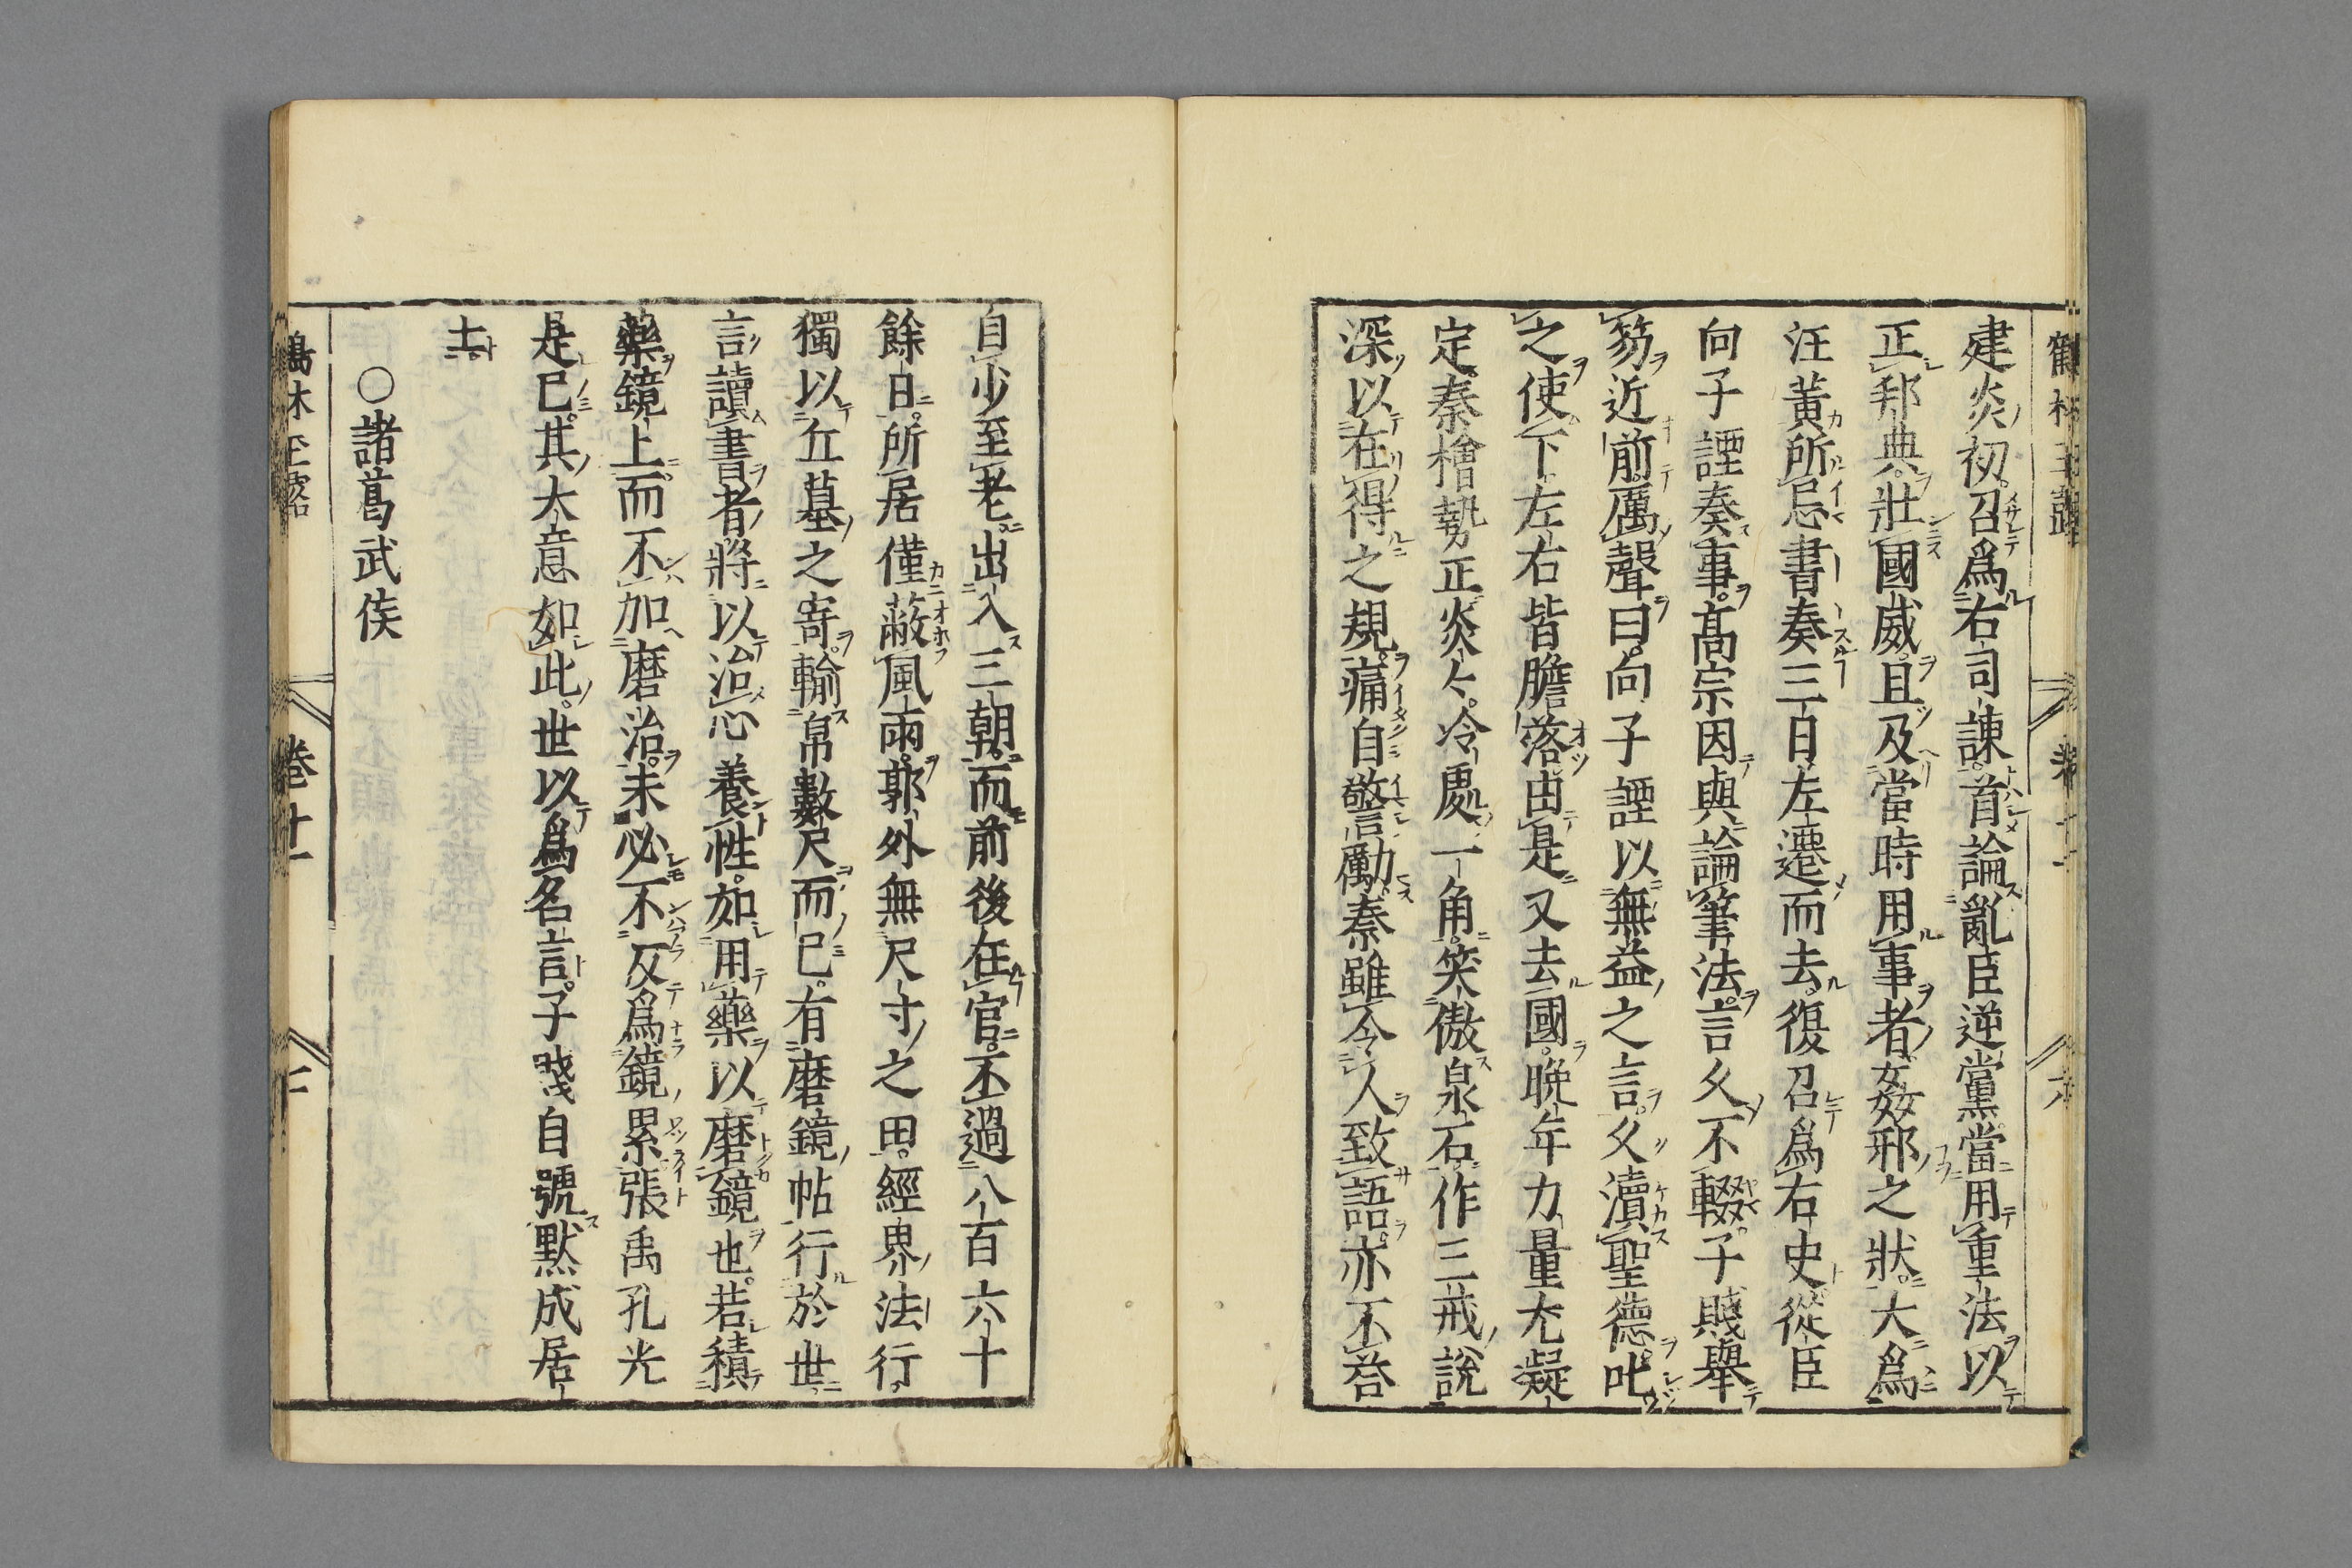 建炎初召爲右司諫首論亂臣逆黨當用重法以
正邦典壯國威且及當時用事者姦邪之狀大爲
汪黃所忌書奏三日左遷而去復召爲右史從臣
向子諲奏事高宗因與論筆法言久不輟子賤舉
笏近前厲聲曰向子諲以無益之言久瀆聖德叱
之使下左右皆膽落由是又去國晚年力量尤凝
定秦檜勢正炎々冷處一角笑傲泉石作三戒說
深以在得之規痛自警勵秦雖令人致語亦不荅
自少至老出入三朝而前後在官不過八百六十
餘日所居僅蔽風雨郭外無尺寸之田經界法行
獨以丘墓之寄輸帛數尺而已有磨鏡帖行於世
言讀書者將以治心養性如用藥以磨鏡也若積
藥鏡上而不加磨治未必不反爲鏡累張禹孔光
是已其大意如此世以爲名言子賤自號默成居
士
○諸葛武侯
卷十一